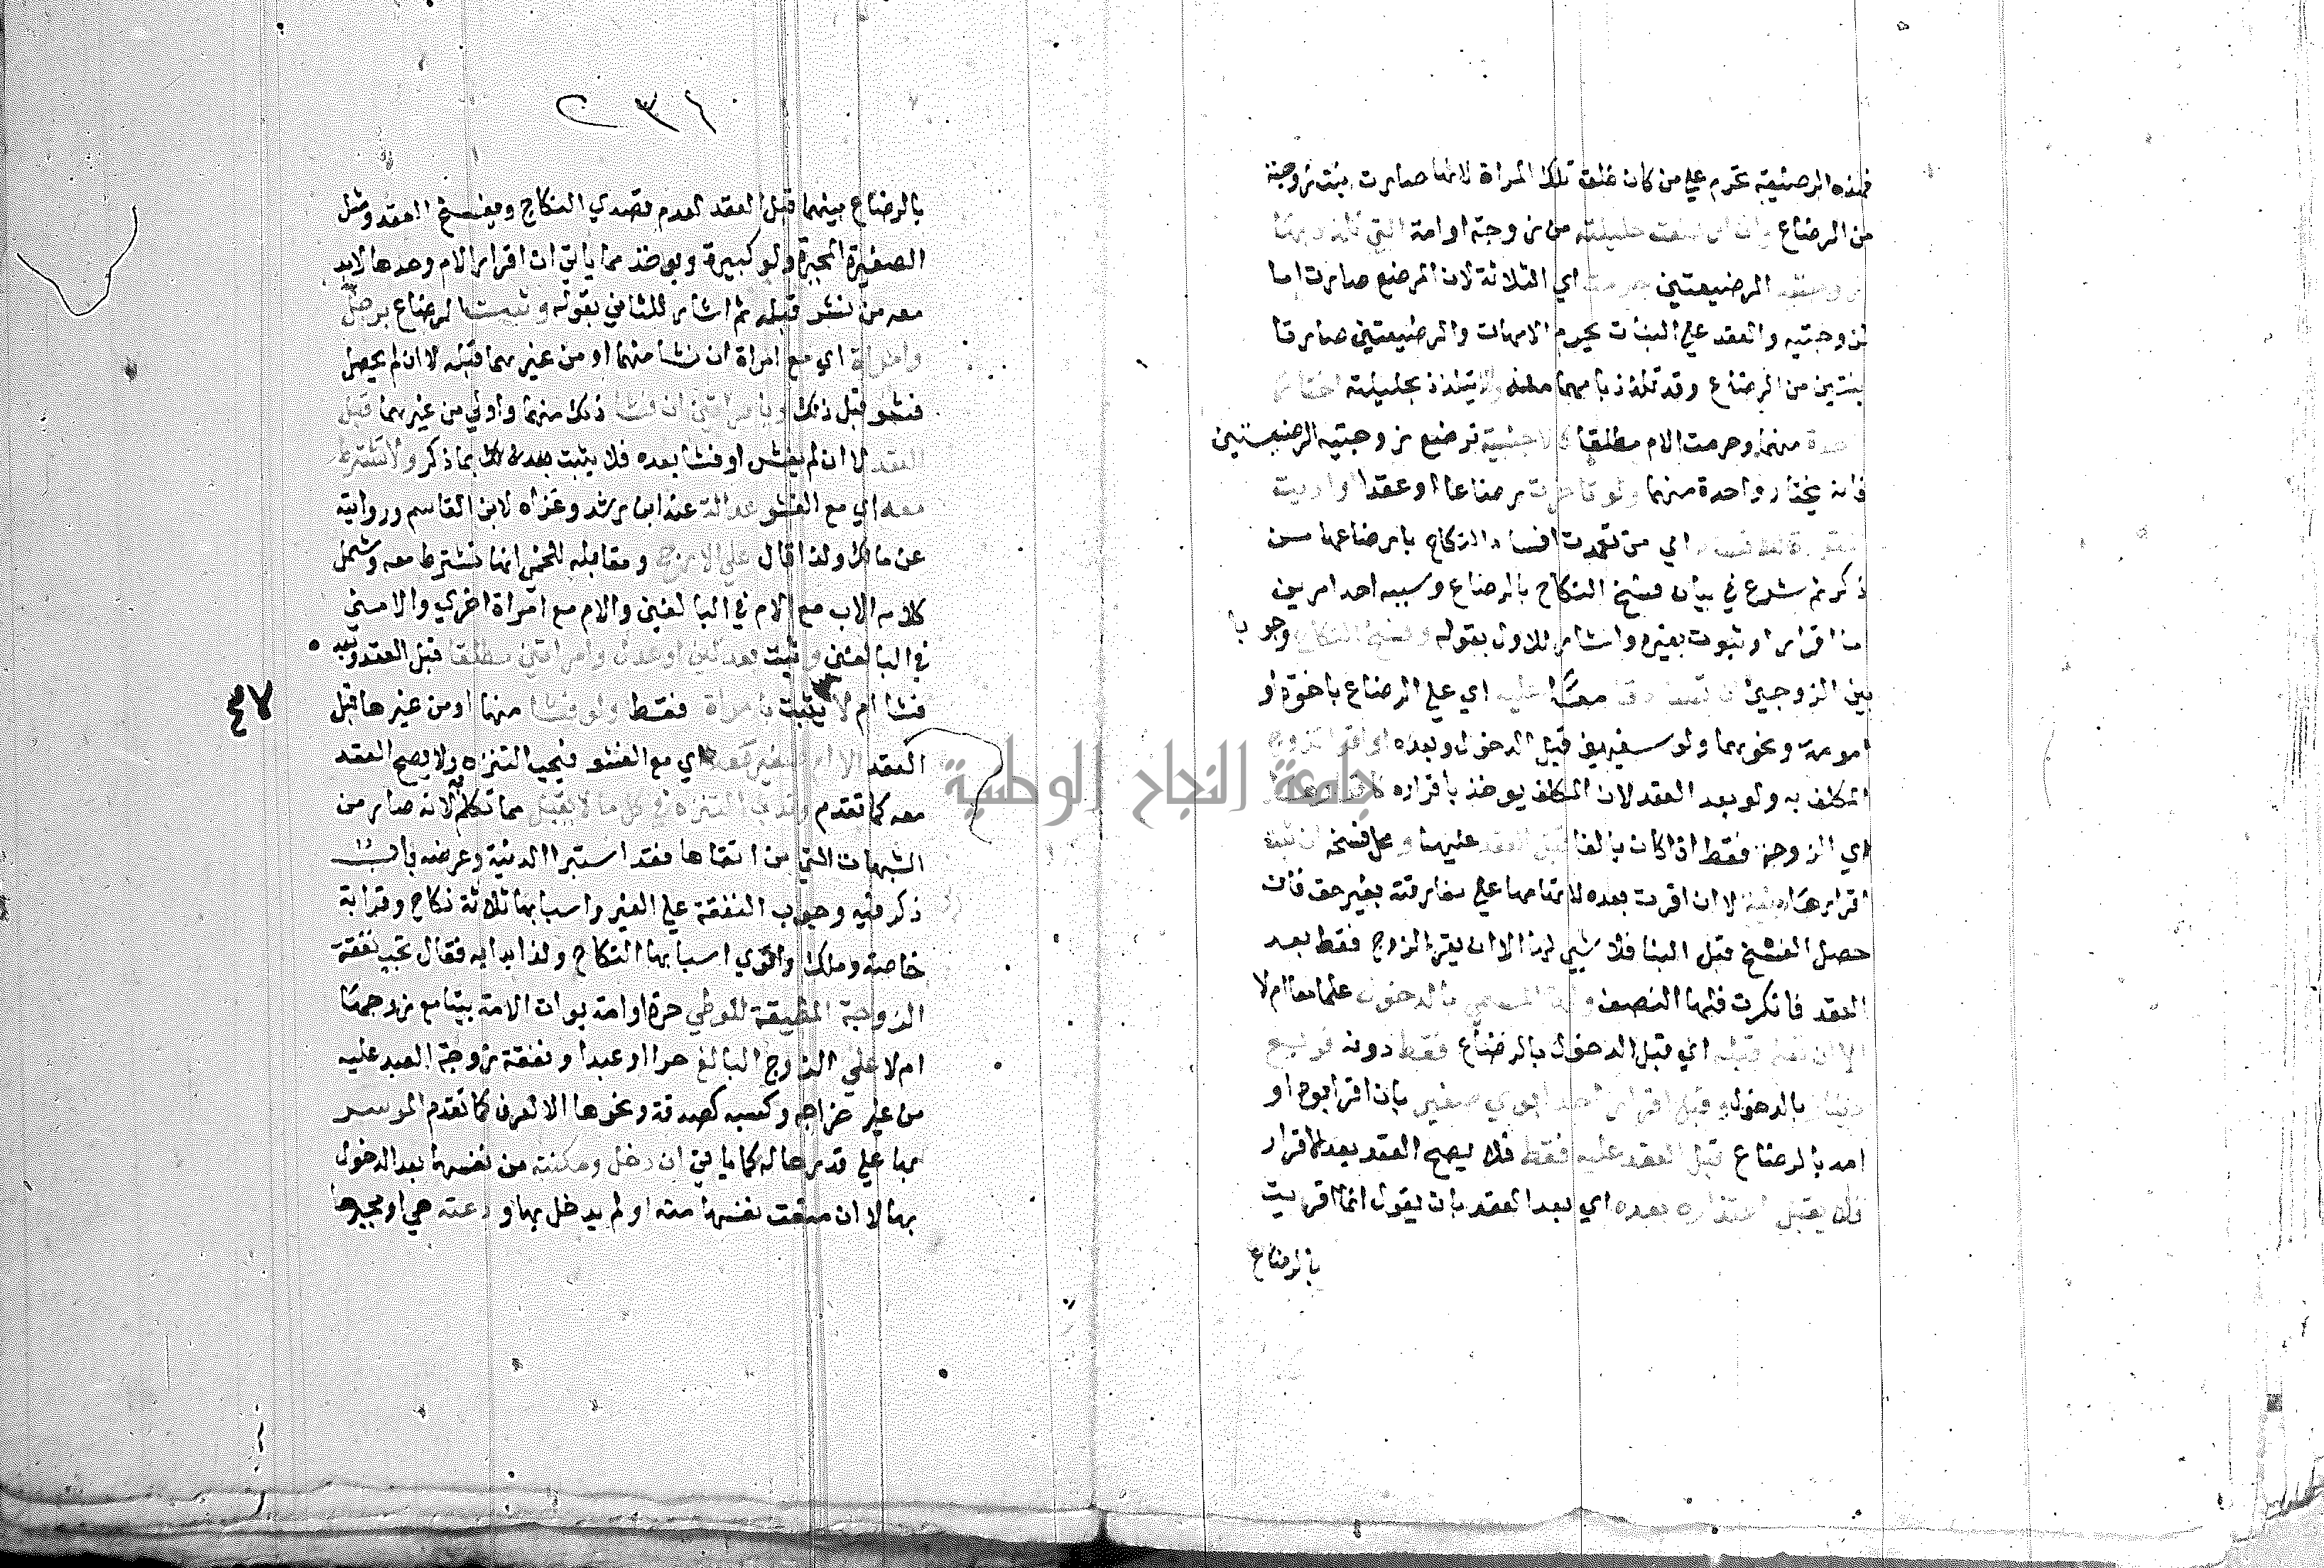 فهذه الرضيعة تحرم علي من كان طلق تلك المراة لانها صارت بنت زوجة
من الرضاع وان ارضعت حليلته من زوجة او امة التي تلذذ بها
زوجتيه الرضيعتين حرمن اي الثلاثة لان المرضع صارت اما
لزوجتيه والعقد علي البنات يحرم الامهات والرضيعتين صارتا
بنتين من الرضاع وقد تلذذ بامهما معه والا يتلذذ بحليلته اختار
واحدة منهما وحرمت الام مطلقا كالاجنبية ترضع زوجتيه الرضيعتين
فانه يختار واحدة منهما ولو تاخرت رضاعا او عقدا وادبت
المتعمدة للافساد اي من تعمدت افساد النكاح بارضاعها من
ذكر ثم شرع في بيان فسخ النكاح بالرضاع وسببه احد امرين
اما اقرار او ثبوت بغيره واشار للاول بقوله وفسخ النكاح وجوبا
بين الزوجين ان تصادقا معا عليه اي علي الرضاع باخوة او
امومة ونحوهما ولو سفيهين قبل الدخول وبعده او اقر الزوج
المكلف به ولو بعد العقد لان المكلف يوخذ باقراره كاقرارها
اي الزوجة فقط اذا كان بالغا قبل العقد عليها ومحل فسخه ان ثبت
اقرارها ببينة لا ان اقرت بعده لاتهامها علي مفارقته بغير حق فان
حصل الفسخ قبل البنا فلا شيي لها الا ان يقر الزوج فقط بعد
العقد فانكرت فلها النصف ولها المسمي بالدخول علما معا ام لا
الا ان تعلم قبله اي قبل الدخول بالرضاع فقط دونه فربع
دينار بالدخول وقبل اقرار احد ابوي صغير بان اقر ابوه او
امه بالرضاع قبل العقد عليه فقط فلا يصح العقد بعد الاقرار
فلا يقبل اعتذاره بعده اي بعد العقد بان يقول انما اقريت
بالرضاع
٢٣٦
بالرضاع بينهما قبل العقد لعدم قصدي النكاح ويفسخ العقد ومثل
الصغيرة المجبرة ولو كبيرة ويوخذ مما ياتي ان اقرار الام وحدها لابد
معه من نشو قبله ثم اشار للثاني بقوله وثبت الرضاع برجل
وامراة اي مع امراة ان فشا منهما او من غيرهما قبله لا ان لم يحصل
فشو قبل ذلك وبامراتين ان فشا ذلك منهما واولي من غيرهما قبل
العقد لا ان لم يفش او فشا بعده فلا يثبت بما ذكر ولا تشترط
معه اي مع الفشو عدالة عند ابن رشد وعزاه لابن القاسم وروايته
عن مالك ولذا قال علي الارجح ومقابله للخمي انها تشترط معه وشمل
كلامه الاب مع الام في البالغين والام مع امراة اخري والامين
في البالغين وثبت بعدلين او عدل وامراتين مطلقا قبل العقد وبعده
فشا ام لا يثبت بامراة فقط ولو فشا منها او من غيرها قبل
العقد الا ام صغير معه اي مع الفشو فيجب التنزه ولا يصح العقد
معه كما تقدم وندب التنزه في كل ما لا يقبل مما تكلم لانه صار من
الشبهات التي من اتقاها فقد استبرا لدينه وعرضه باب
ذكر فيه وجوب النفقة علي الغير واسبابها ثلاثة نكاح وقرابة
خاصة وملك واقوي اسبابها النكاح ولذا بدا به فقال تجب نفقة
الزوجة المطيقة للوطي حرة او امة بوات الامة بيتا مع زوجها
ام لا علي الزوج البالغ حرا او عبدا ونفقة زوجة العبد عليه
من غير خراجه وكسبه كصدقة ونحوها الا لعرف كما تقدم الموسر
بها علي قدر حاله كما ياتي ان دخل ومكنته من نفسها بعد الدخول
بها لا ان منعت نفسها منه او لم يدخل بها ودعته هي او مجبرها